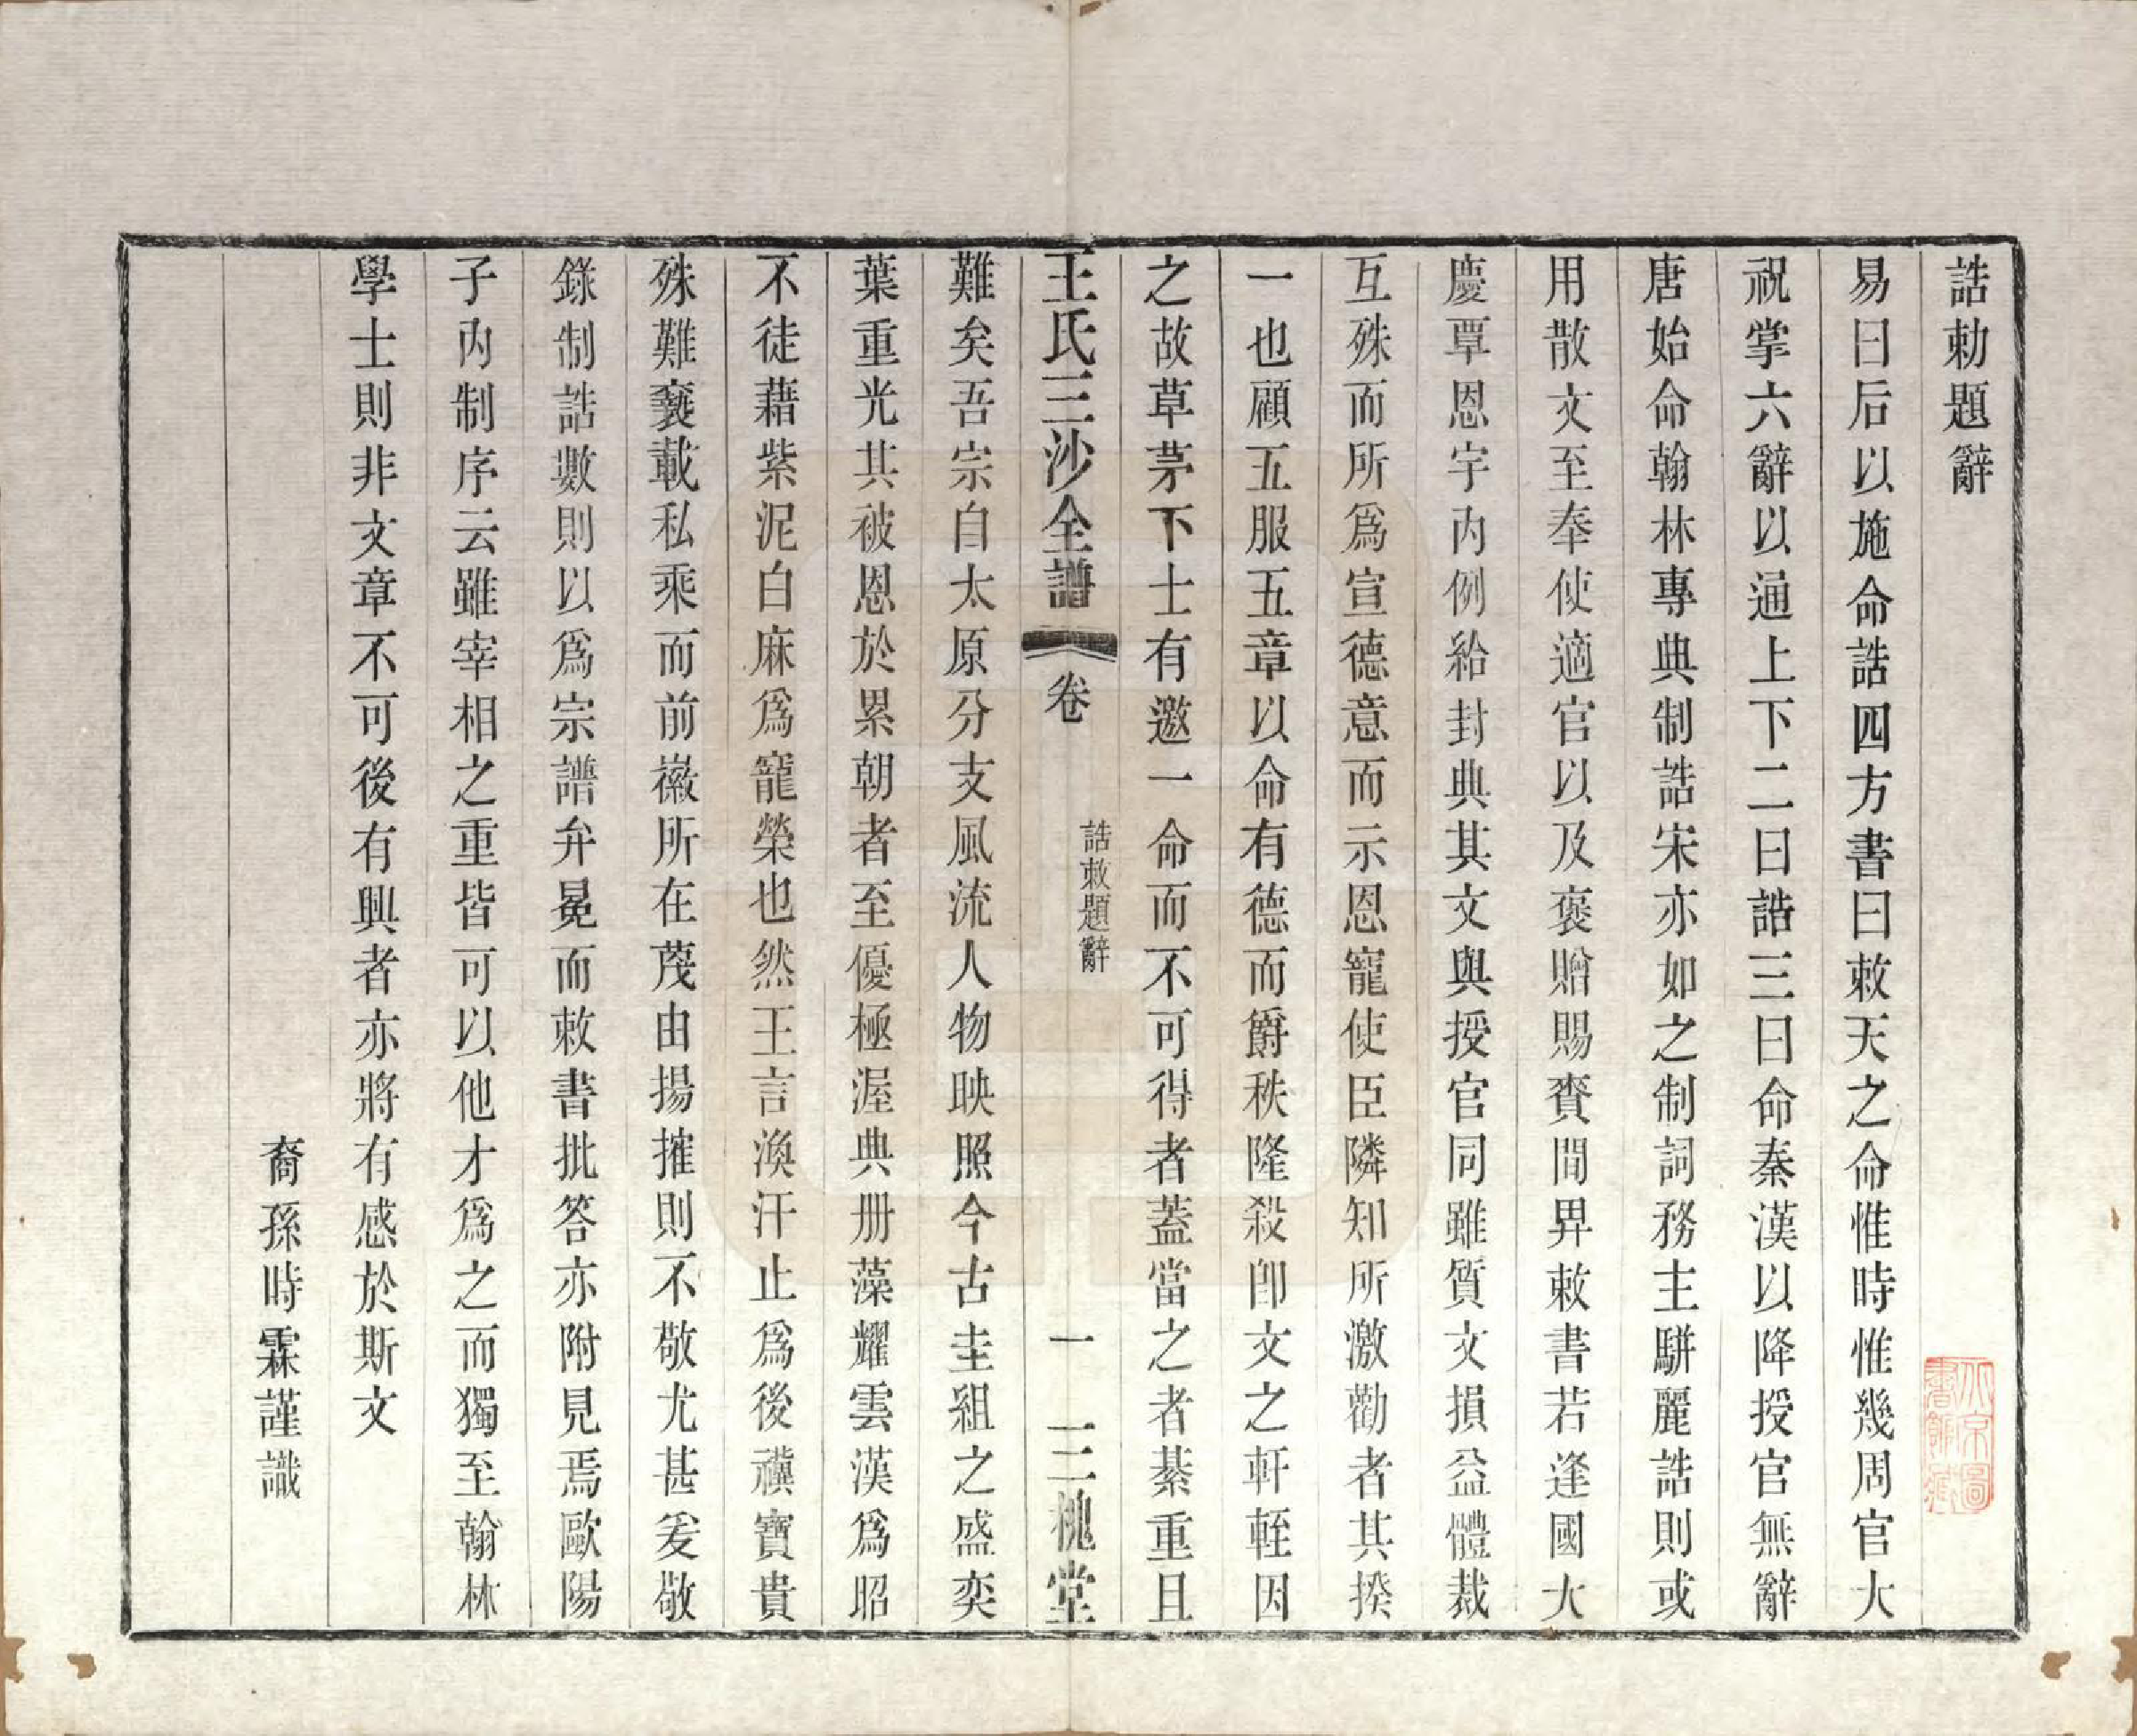 誥勅題辭
易曰后以施命誥四方書曰敕天之命惟時惟幾周官大
祝掌六辭以通上下二曰誥三曰命秦漢以降授官無辭
唐始命翰林專典制誥宋亦如之制詞務主駢麗誥則或
用散文至奉使適官以及褒贈賜賚間畀敕書若逢國大
慶覃恩宇內例給封典其文與授官同雖質文損益體裁
互殊而所爲宣德意而示恩寵使臣隣知所激勸者其揆
一也顧五服五章以命有德而爵秩隆殺卽文之軒輊因
之故草茅下士有邀一命而不可得者蓋當之者綦重且
王氏三沙全譜
卷
誥敕題辭
一
三槐堂
難矣吾宗自太原分支風流人物映照今古圭組之盛奕
葉重光其被恩於累朝者至優極渥典册藻耀雲漢爲昭
不徒藉紫泥白麻爲寵榮也然王言渙汗止爲後禩寶貴
殊難褻載私乘而前徽所在蔑由揚搉則不敬尤甚爰敬
錄制誥數則以爲宗譜弁冕而敕書批答亦附見焉歐陽
子內制序云雖宰相之重皆可以他才爲之而獨至翰林
學士則非文章不可後有興者亦將有感於斯文
裔孫時霖謹識